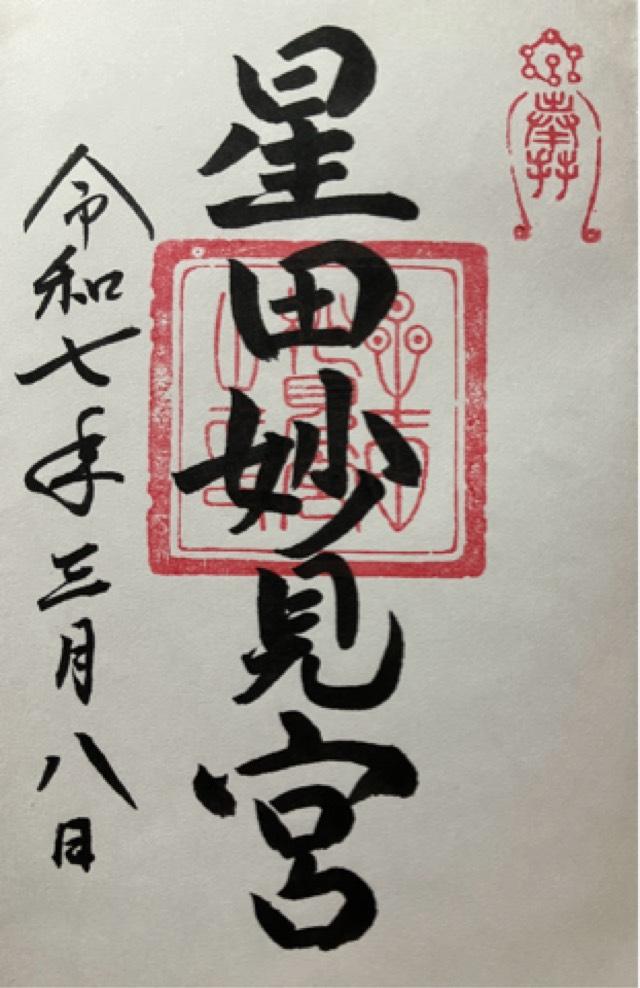 奉拝
星田妙見宮
令和七年三月八日